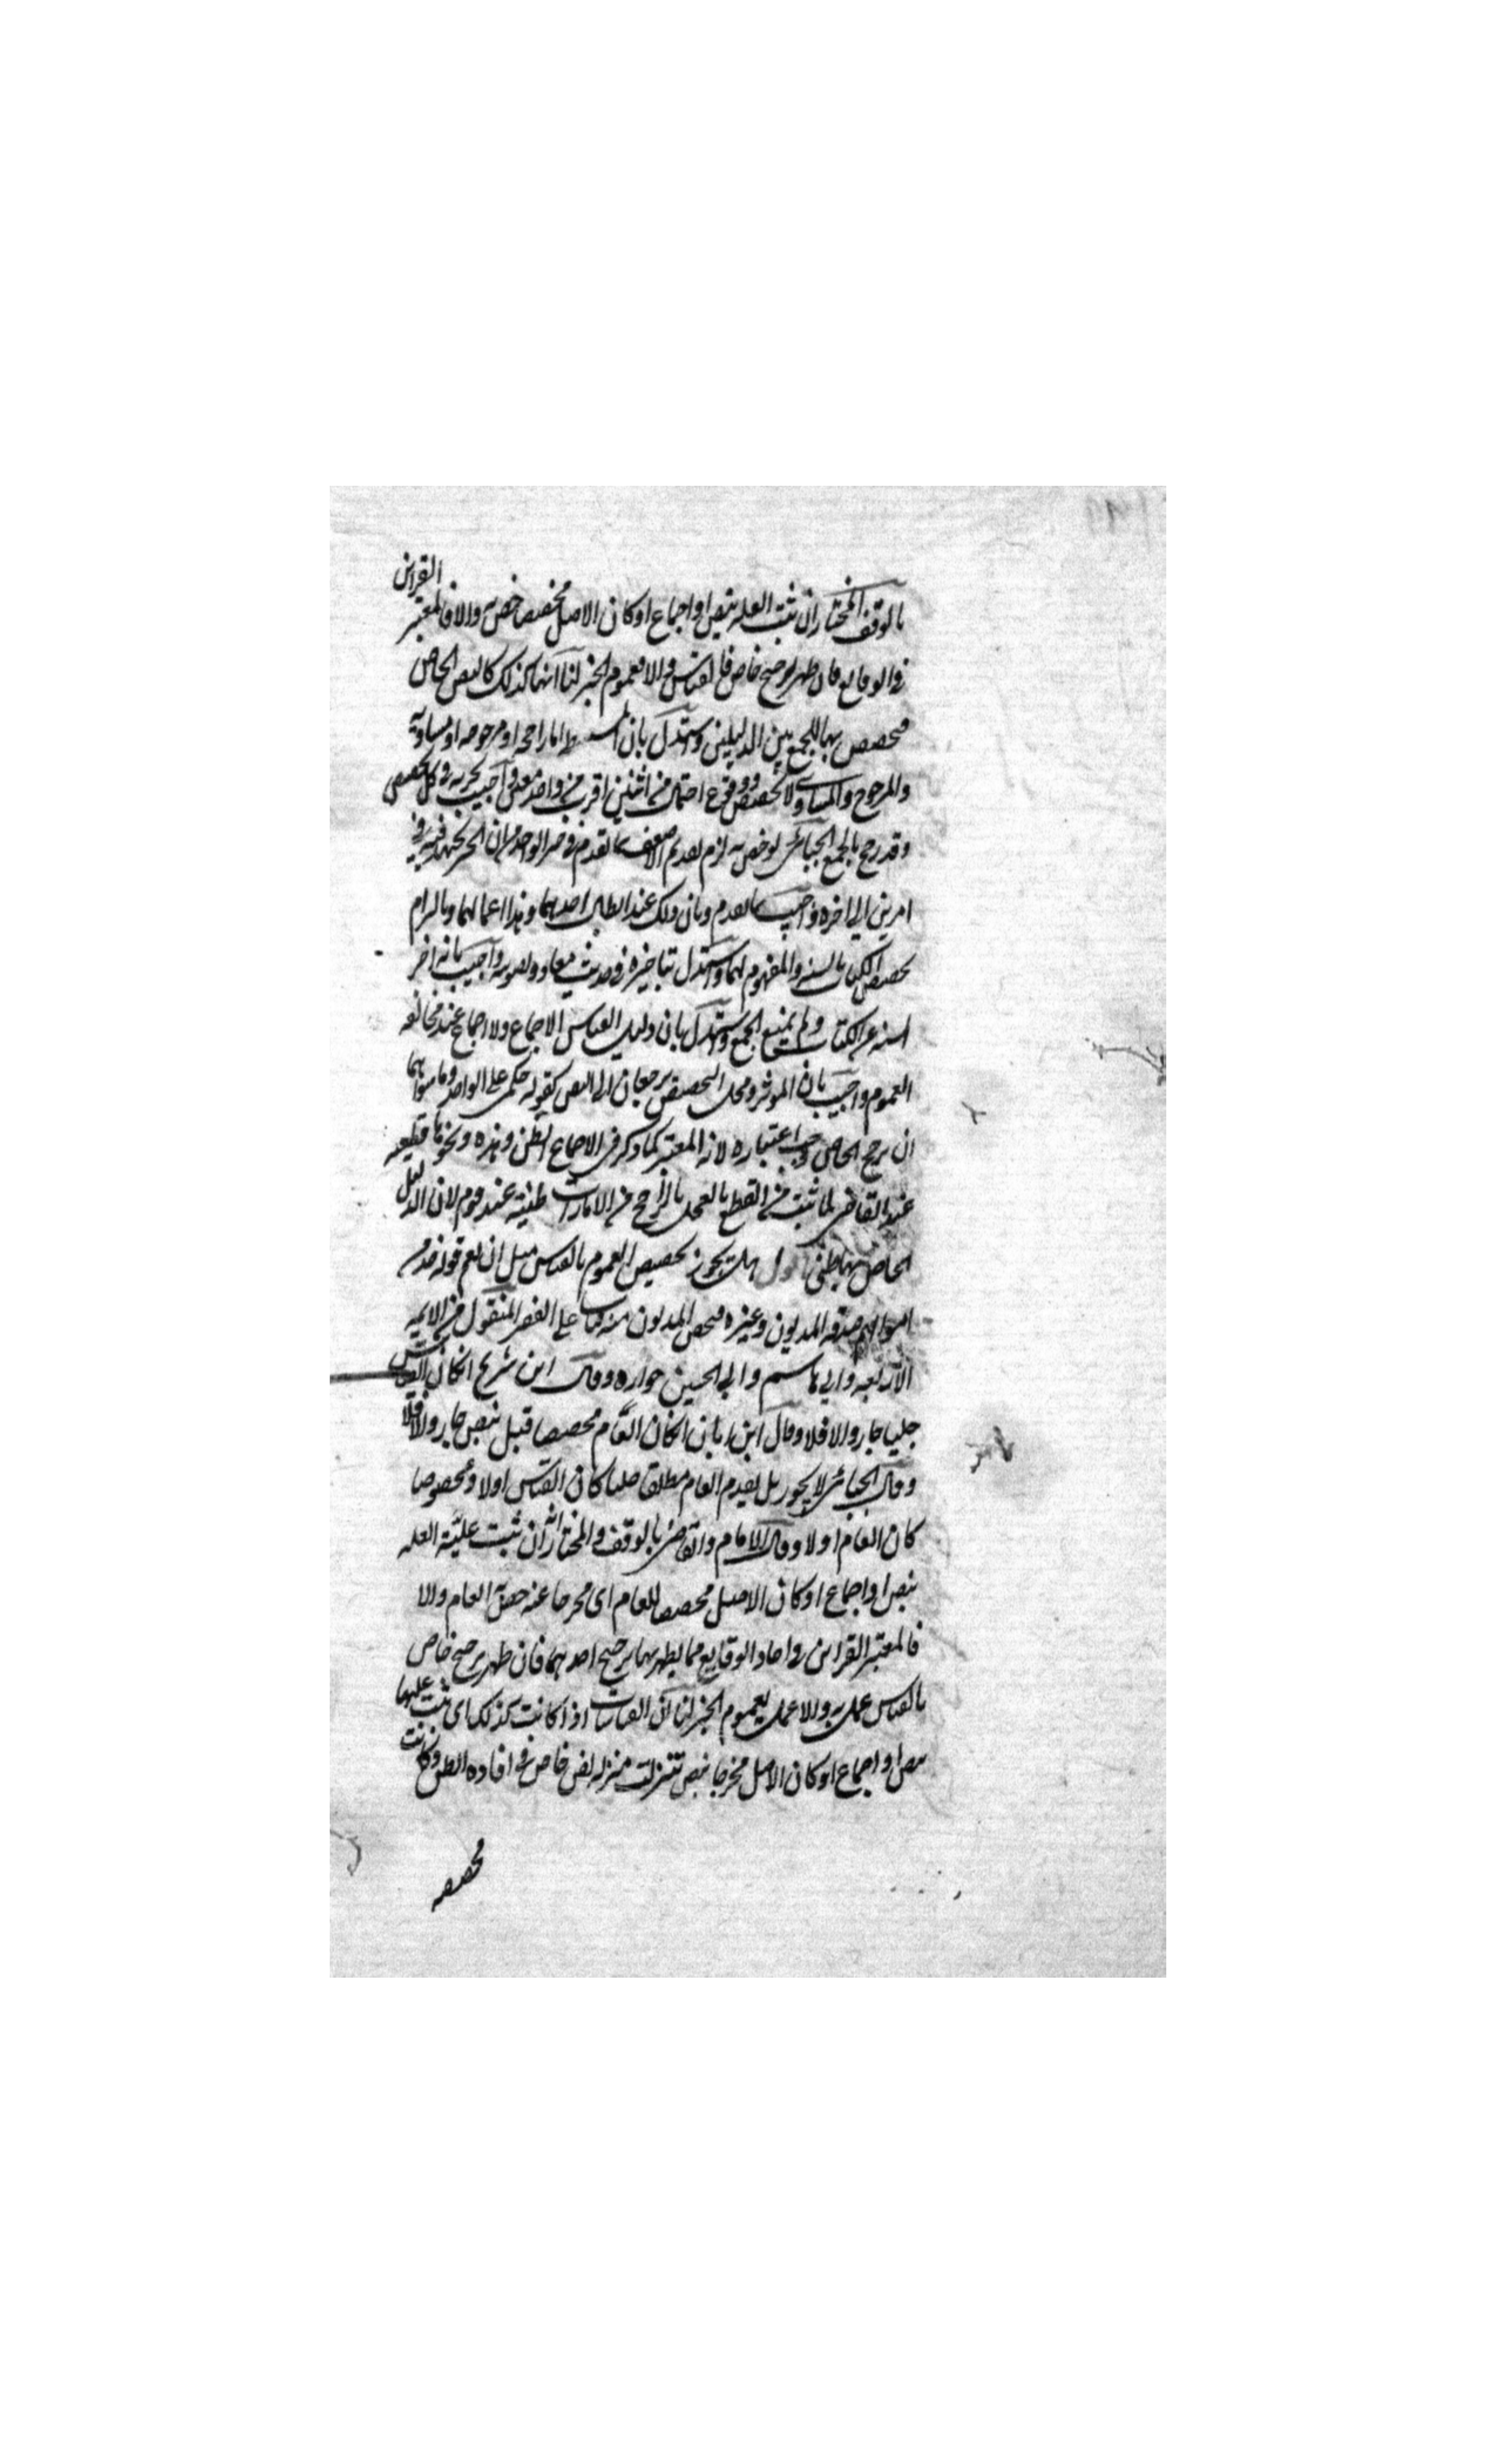 بالوقف المختار ان ثبت العلة بنص او اجماع او كان الاصل مخصصا خص به والا فالمعتبر القراين
في الوقايع فان ظهر ترجيح خاص فالقياس والا فعموم الخبر لنا انها كذلك كالنص الخاص
فيخصص بها للجمع بين الدليلين واستدل بان المستنبطة اما راجحة او مرجوحة او مساوية
والمرجوح والمساوي لا يخصص ووقوع احتمال من اثنين اقرب من واحد معين واجيب بجريه في كل تخصيص
وقد رجح بالجمع الجبائي لو خص به لزم تقديم الاضعف بما تقدم في خبر الواحد من ان الخبر يجتهد فيه في
امرين الى اخره واجيب بما تقدم وبان ذلك عند ابطال احدهما وهذا اعمال لهما وبالزام
تخصيص الكتاب بالسنة والمفهوم لهما واستدل بتاخيره في حديث معاذ وتصويبه واجيب بانه اخر
السنة عن الكتاب ولم يمنع الجمع واستدل بان دليل القياس الاجماع ولا اجماع عند مخالفة
العموم واجيب بان الموثرة ومحل التخصيص يرجعان الى النص كقوله حكمي على الواحد وما سواهما
ان رجح الخاص وجب اعتباره لانه المعتبر كما ذكر في الاجماع الظني وهذه ونحوها قطعية
عند القاضي لما ثبت من القطع بالعمل بالراجح من الامارات ظنية عند قوم لان الدليل
الخاص بها ظني اقول هل يجوز تخصيص العموم بالقياس مثل ان يعم قوله خذ من
اموالهم صدقة المديون وغيره فيخص المديون منه قياسا على الفقير المنقول من الايمه
الاربعة وابي هاسم وابي الحسين جوازه وقال ابن شريح ان كان القياس
جليا جاز والا فلا وقال ابن ابان ان كان العام مخصصا قبل بنص جاز والا فلا
وقال الجبائي لا يجوز بل يقدم العام مطلقا جليا كان القياس اولا ومخصوصا
كان العام اولا وقال الامام والقاضي بالوقف والمختار انه ان ثبت علية العلة
بنص او اجماع او كان الاصل مخصصا للعام اى مخرجا عنه خص به العام والا
فالمعتبر القراين في احاد الوقايع مما يظهر بها ترجيح احدهما فان ظهر ترجيح خاص
بالقياس عمل به والا عمل بعموم الخبر لنا ان القياسات اذا كانت كذلك اى ثبت عليتها
بنص او اجماع او كان الاصل مخرجا بنص تتنزلت منزلة نص خاص في افادة الظن وكانت
مخصصه